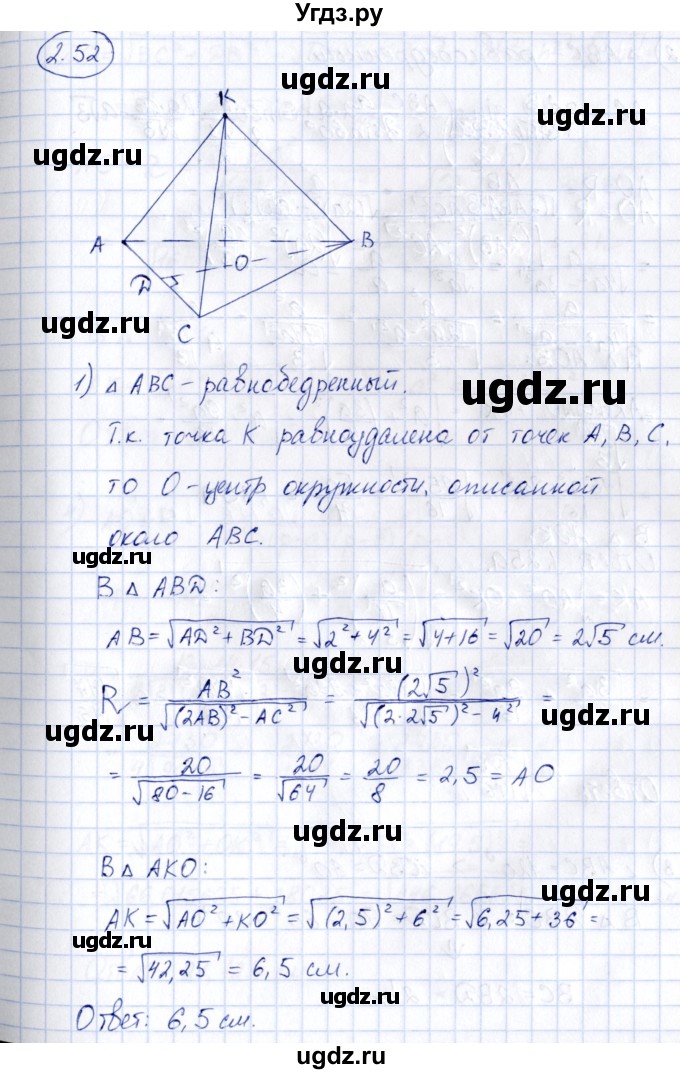 Угдз.ру
2.52
ugdz.ru
ugdz.ru
ugdz.ru
K
A
B
O
D
C
ugdz.ru
ugdz.ru
1) △ ABC - равнобедренный.
ugdz.ru
Т.к. точка K равноудалена от точек A, B, C,
то O - центр окружности, описанной
около ABC.
ugdz.ru
ugdz.ru
В △ ABD:
AB = √(AD² + BD²) = √(2² + 4²) = √(4+16) = √20 = 2√5 см.
R = AB² / √((2AB)² - AC²) = (2√5)² / √((2·2√5)² - 4²) =
ugdz.ru
ugdz.ru
= 20 / √(80-16) = 20 / √64 = 20/8 = 2,5 = AO
ugdz.ru
В △ AKO:
ugdz.ru
AK = √(AO² + KO²) = √((2,5)² + 6²) = √(6,25 + 36) =
ugdz.ru
= √42,25 = 6,5 см.
ugdz.ru
Ответ: 6,5 см.
ugdz.ru